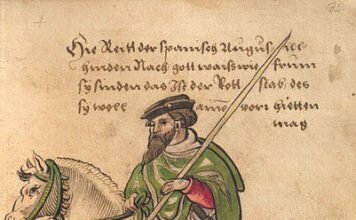 Hie Reitt der spanisch Augus
hinden Nach gott waiß wie frum
sy sinden das Ist der Rott stab des
sy woll vor
mag